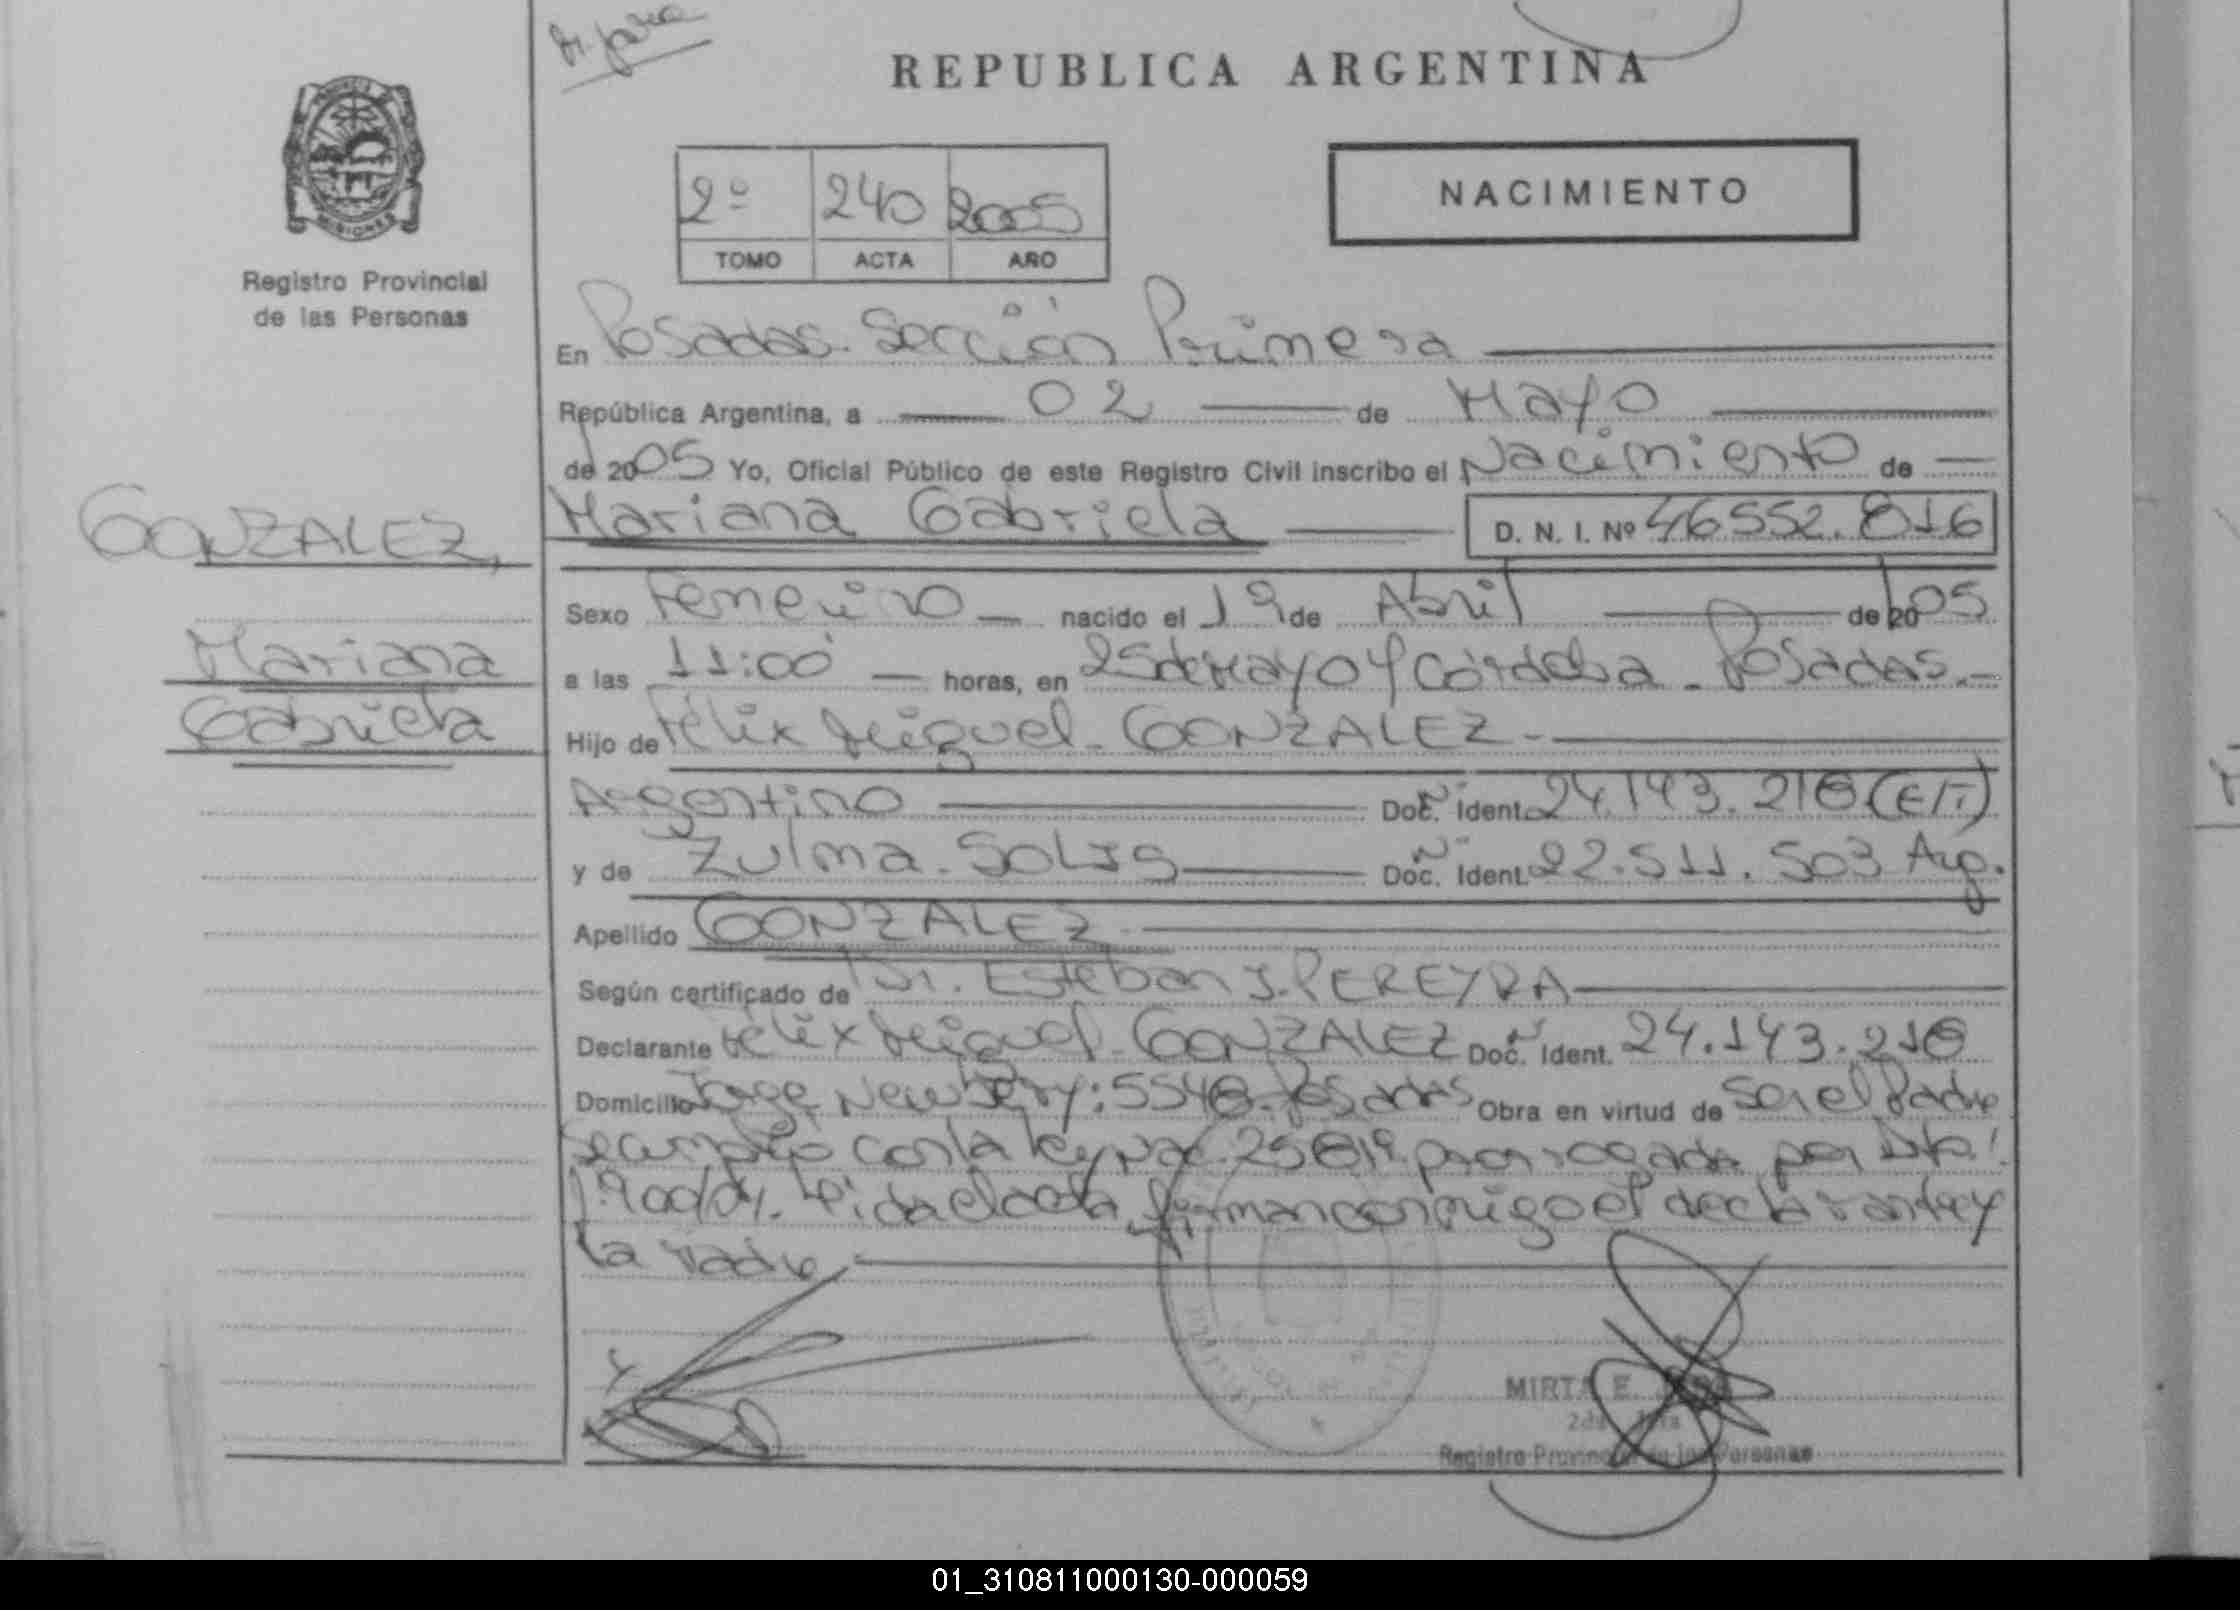 REPUBLICA ARGENTINA
MISIONES
Registro Provincial
de las Personas
2º 240 2005
TOMO ACTA AÑO
NACIMIENTO
En Posadas. Sección Primera
República Argentina, a 02 de Mayo
de 2005 Yo, Oficial Público de este Registro Civil inscribo el Nacimiento de
Mariana Gabriela D. N. I. Nº 46552.816
GONZALEZ,
Mariana
Gabriela
Sexo Femenino nacido el 19 de Abril de 2005
a las 11:00 horas, en 25 de Mayo y Córdoba - Posadas.
Hijo de Félix Miguel GONZALEZ
Argentino Doc. Ident. 24.143.218 (E/T)
y de Zulma SOLIS Doc. Ident. 22.511.503 Arg.
Apellido GONZALEZ
Según certificado de Dr. Esteban J. PEREYRA
Declarante Félix Miguel GONZALEZ Doc. Ident. 24.143.218
Domicilio Jorge Newbery: 5548. Posadas Obra en virtud de Ser el Padre
Se cumplió con la Ley Nac. 25819 prorrogada por Dto.
Leida el acta, firman conmigo el declarante y
la
MIRTA E.
Registro Provincial de las Personas
01_310811000130-000059